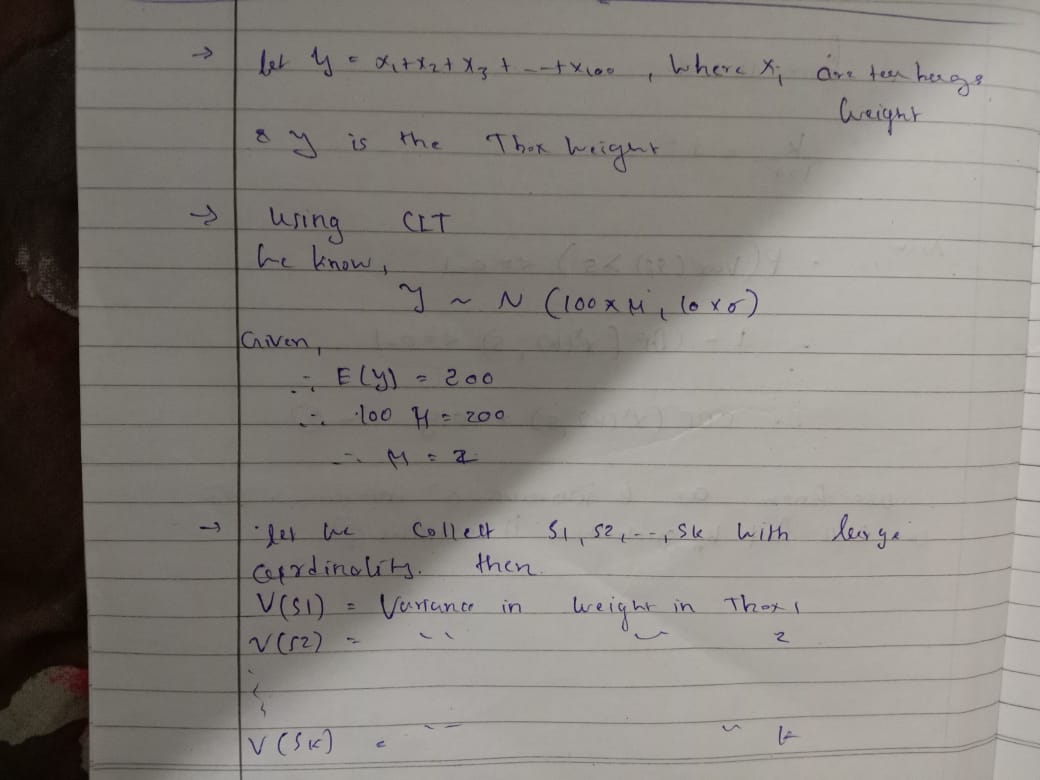 → let y = x₁+x₂+x₃+--+x₁₀₀, where xᵢ are tea bags
weight
& y is the Tbox weight
→ Using CLT
we know,
y ~ N (100×μ, 10×σ)
Given,
∴ E(y) = 200
∴ 100 μ = 200
∴ μ = 2
→ let we collect S1, S2, --, Sk with large
cardinality. then
V(S1) = Variance in weight in Tbox 1
V(S2) = " " 2
V(Sk) = " " k